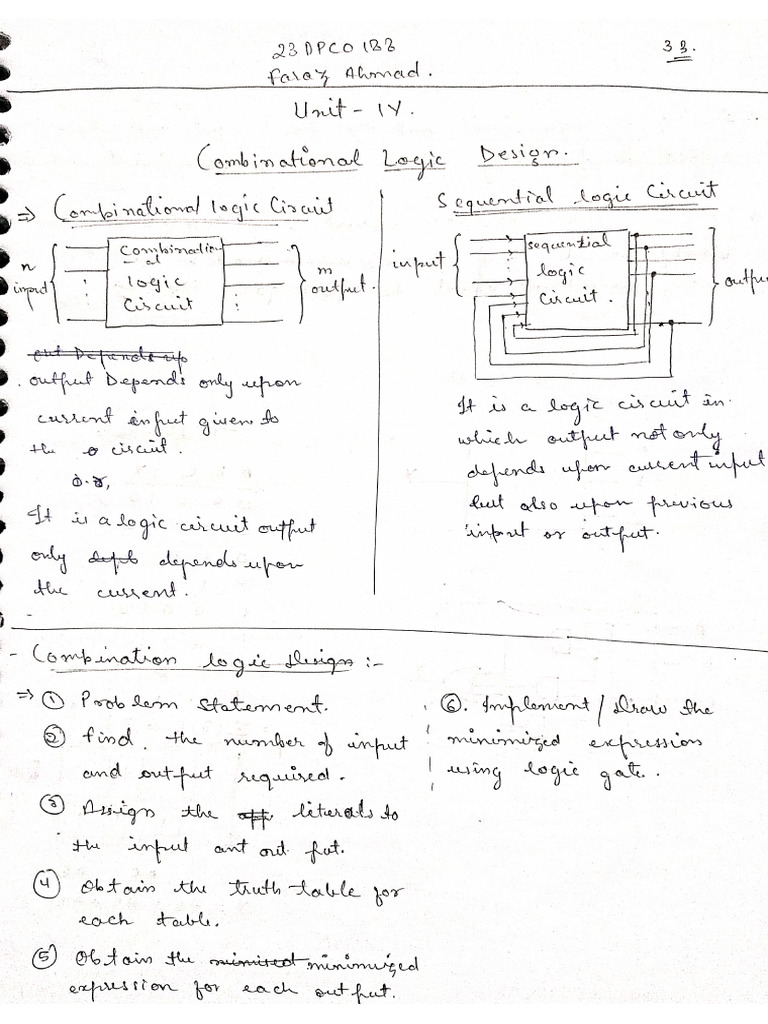 23DPCO133
33.
Faraz Ahmad.
Unit - IV.
Combinational Logic Design.
⇒ Combinational logic Circuit
n
input
Combination
al
logic
Circuit
m
output.
output Depends only upon
current input given to
the circuit.
o.r,
It is a logic circuit output
only depends upon
the current.
Sequential logic Circuit
input
sequential
logic
Circuit.
output
It is a logic circuit in
which output not only
depends upon current input
but also upon previous
input or output.
- Combination logic design :-
⇒ ① Problem statement.
② find the number of input
and output required.
③ Assign the literals to
the input ant out put.
④ Obtain the truth table for
each table.
⑤ Obtain the minimized
expression for each output.
⑥. Implement / draw the
minimized expression
using logic gate.